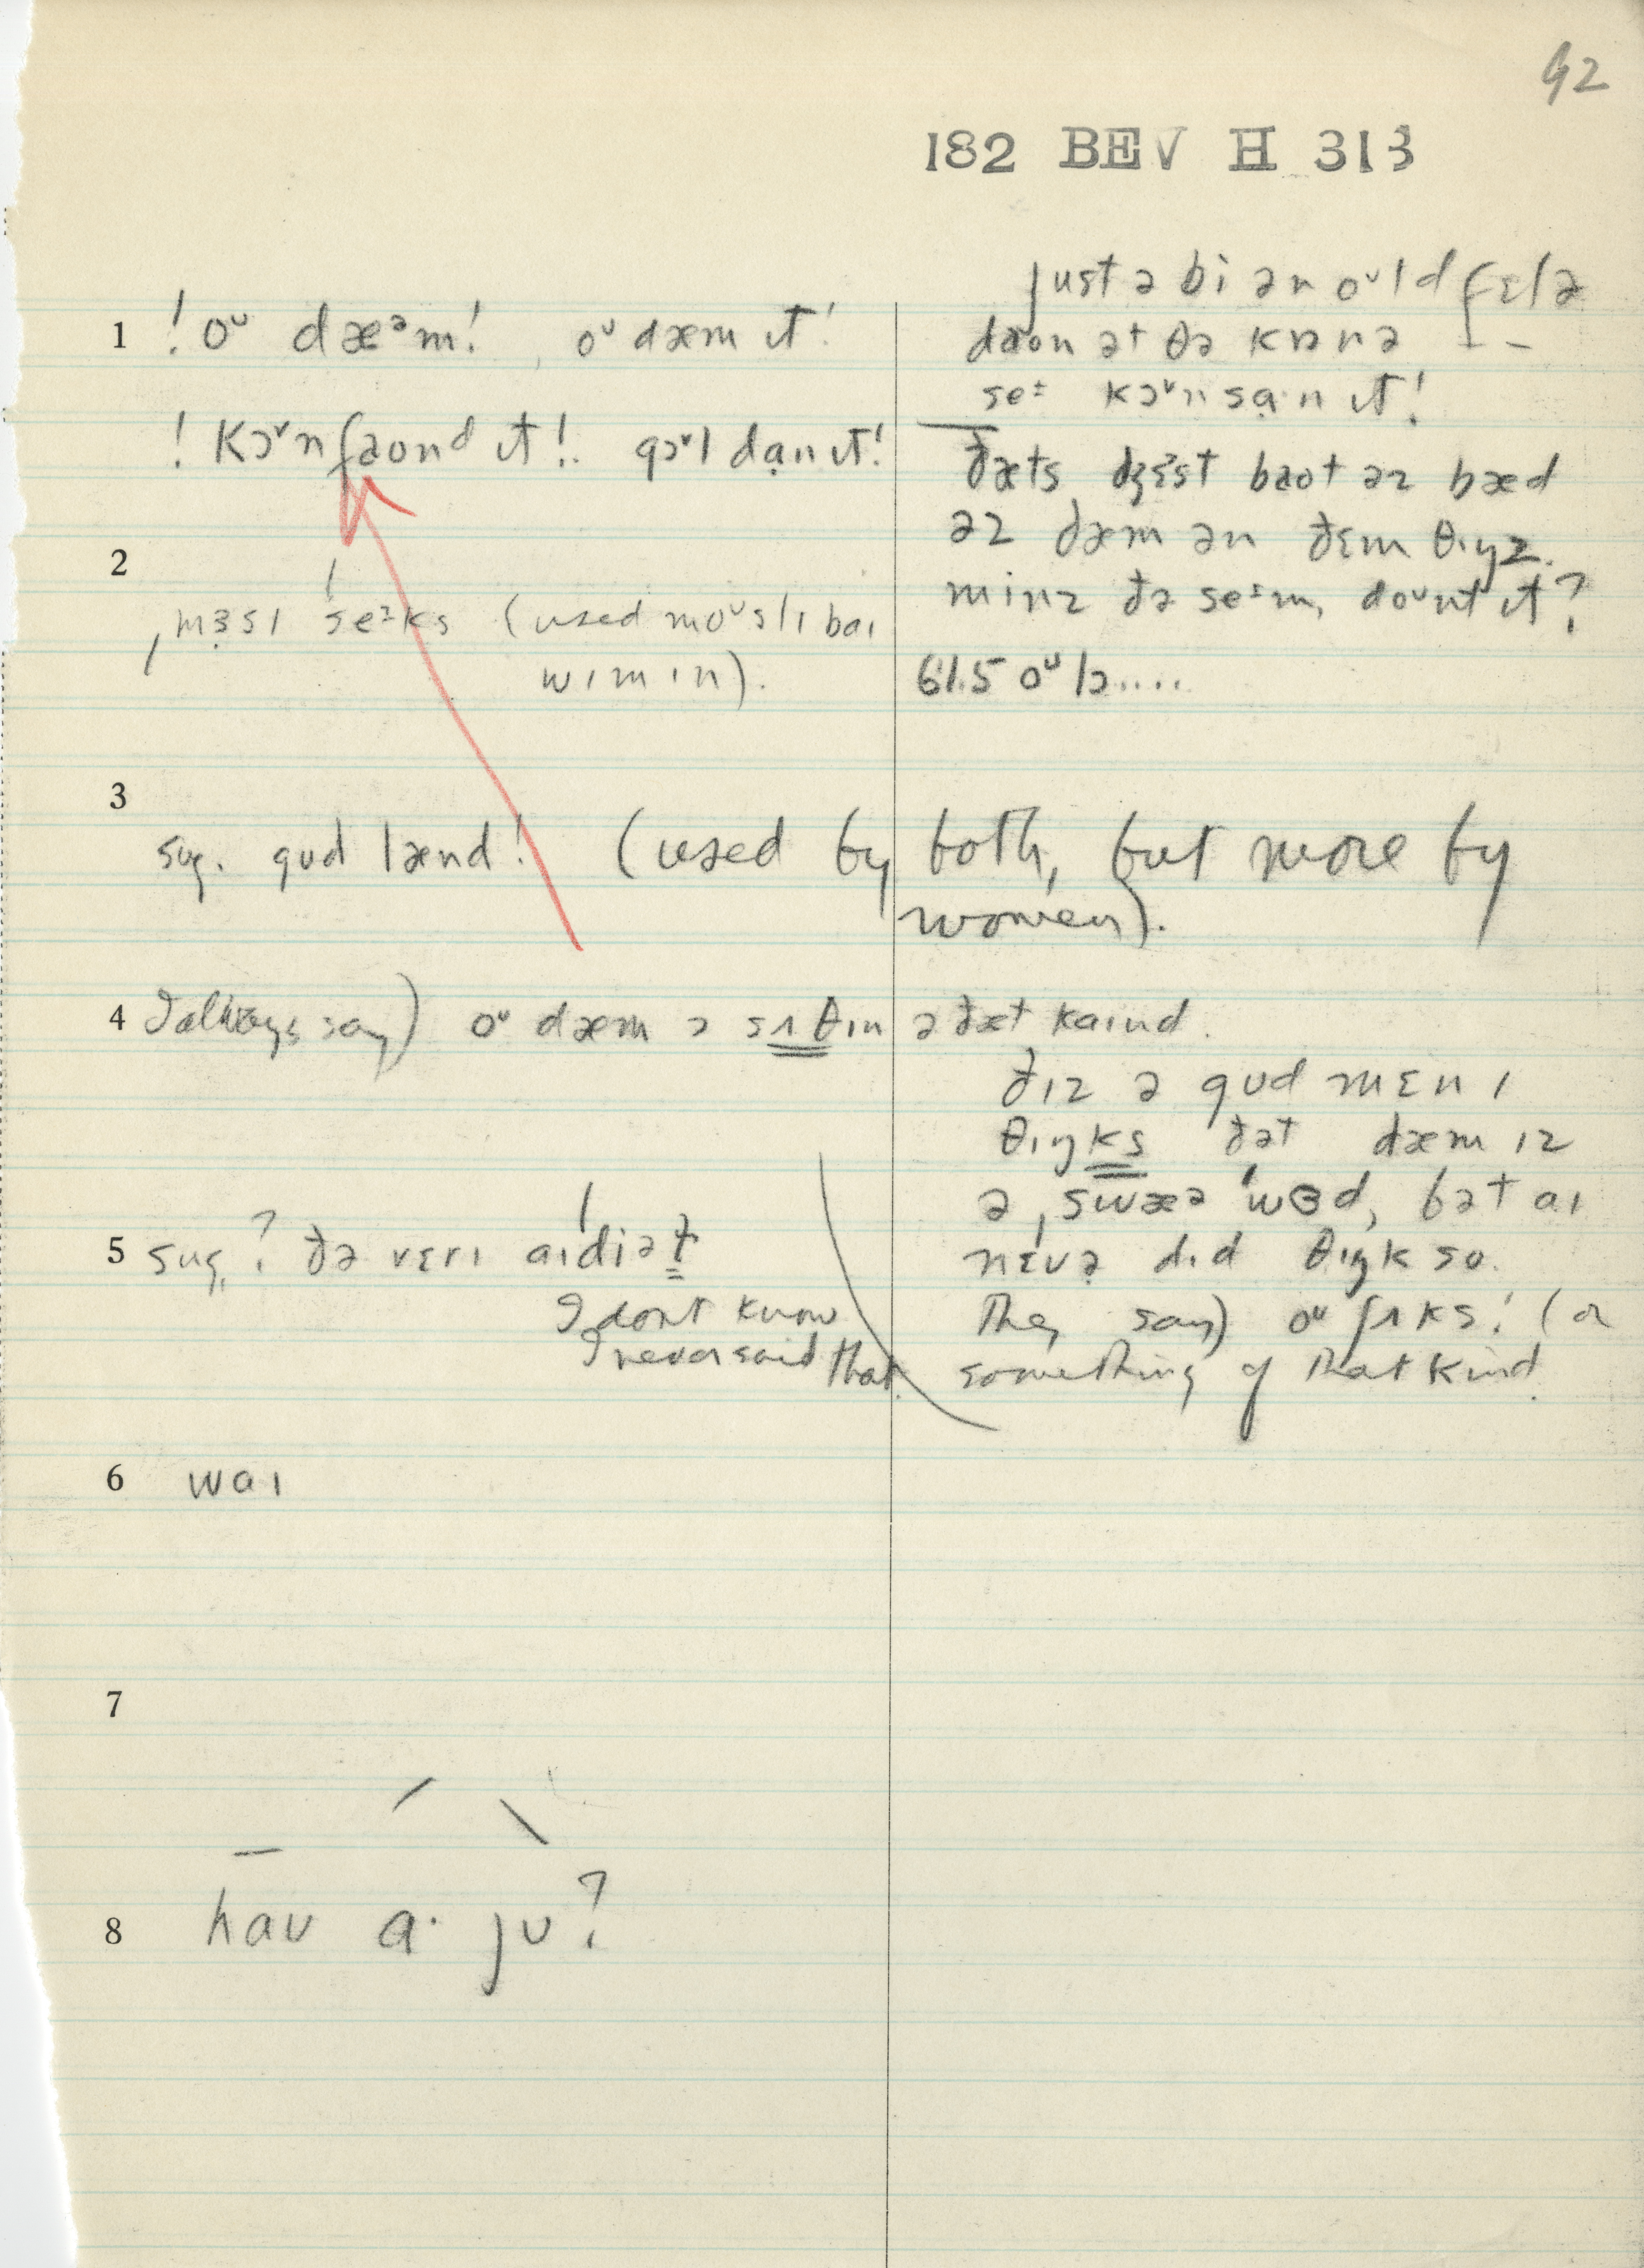 92
182 BEV H 313
1 ! oᵘ dæᵊm! , oᵘ dæm ɪt!
! kɔᵛn faond ɪt!. gɔᵛl dạn ɪt!
just ə bi ən oᵘld fɛlə
daon ət ðə kɒnə
seᶤ kɔᵛnsạ·n ɪt!
ðæts dʒɛst baot əz bæd
əz dæm ən ðɛm θɪŋz.
minz ðə seᶤm, doᵘnt ɪt?
61.5 oᵘ lɔ....
2
ˌmɜsɪ ˈseᶤks (used moᵘslɪ baɪ
wɪmɪn).
3
sug. gʊd lænd! (used by both, but more by
women).
4 I always say) oᵘ dæm ɔ sʌθɪn ə ðæt kaɪnd.
ðɪz ə gʊd mɛnɪ
θɪŋks ðət dæm ɪz
ə ˌswæə ˈwɜd, bət aɪ
nɛvə dɪd θɪŋk so.
They say) oᵘ ʃʌks! (or
something of that kind.
5 sug. ? ðə vɛrɪ aɪˈdiət
I dont know
I never said that.
6 waɪ
7
8 haʊ a· jʊ?